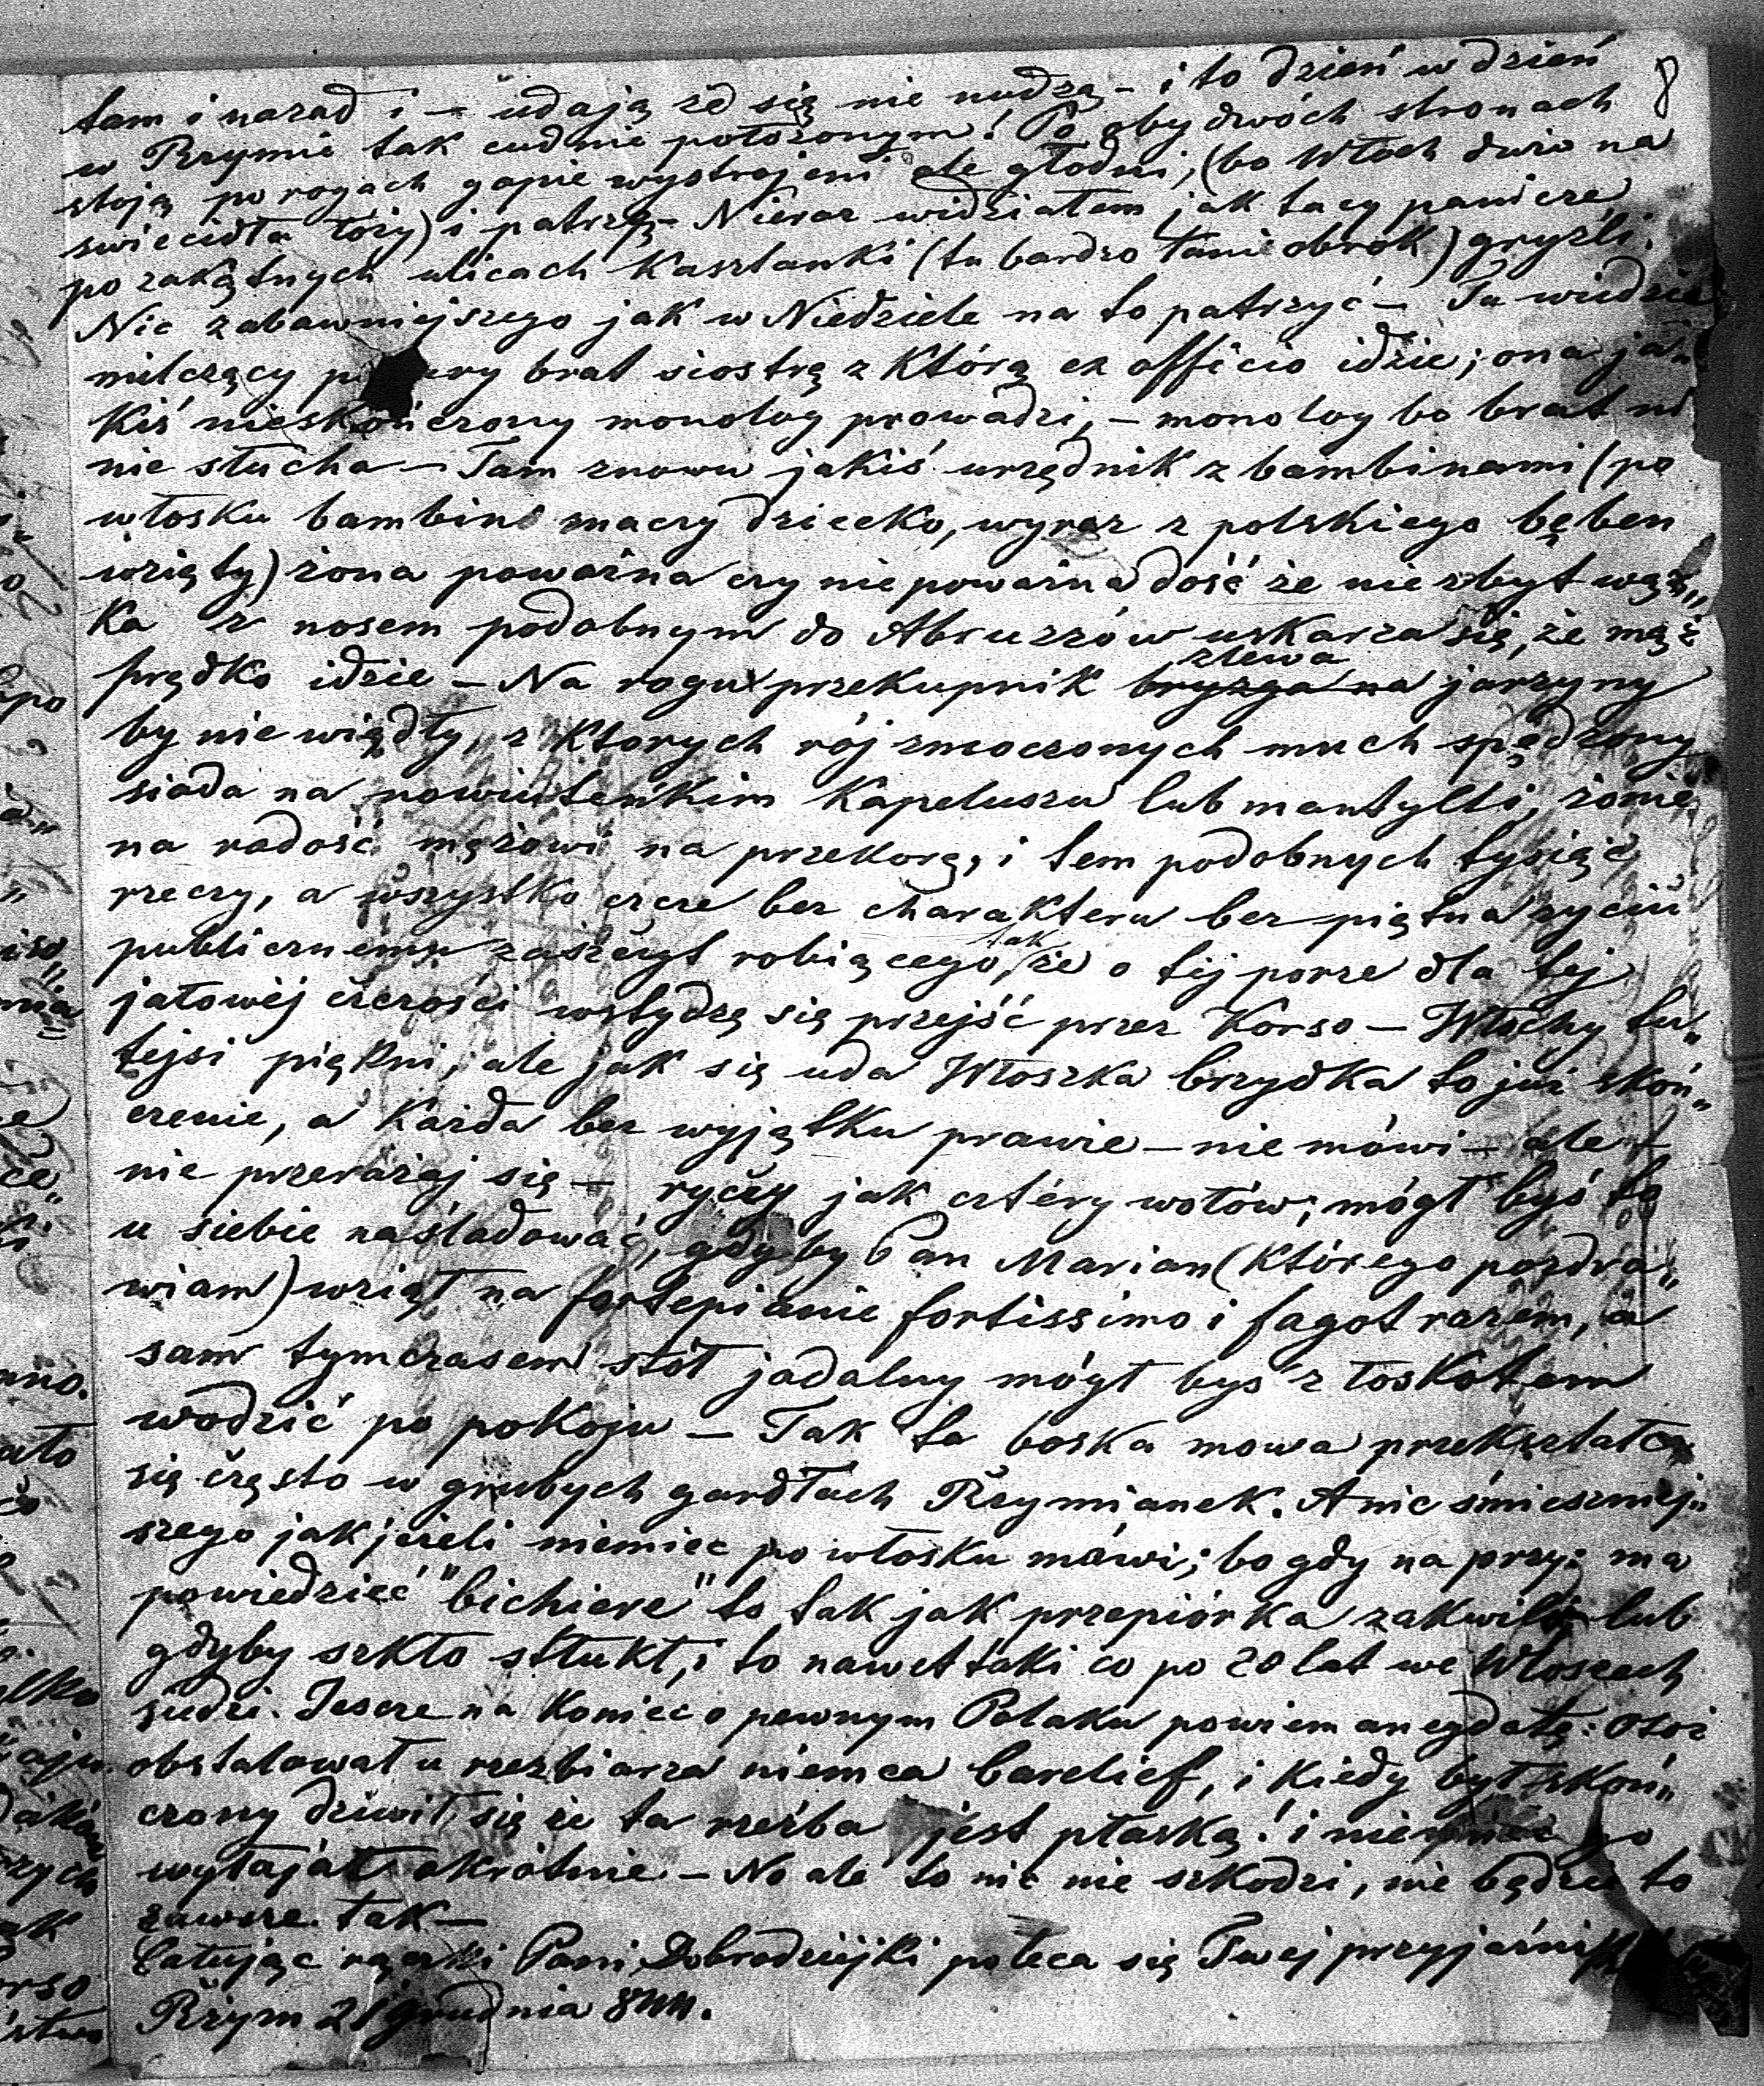 8
tam i nazad i – udają że się nie nudzą – i to dzień w dzień
w Rzymie tak cudnie położonym! Po obydwóch stronach
stoją po rogach gapie wystrojeni ale głodni, (bo Włoch dużo na
świecidła łoży) i patrzą – Nieraz widziałem jak tacy panicze
po zakątnych ulicach kasztanki (tu bardzo tani obrok) gryźli.
Nic zabawniejszego jak w Niedziele na to patrzyć – Tu wiedzie
milczący brat siostrę z którą ex officio idzie; ona ja„
kiś nieskończony monolog prowadzi, – monolog bo brat
nie słucha – Tam znowu jakiś urzędnik z bambinami (po
włosku bambino znaczy dziecko, wyraz z polskiego bęben
wzięty) żona poważna czy nie poważna dość że nie zbyt
ka z nosem podobnym do Abruzzów uskarza się, że mąż
prędko idzie – Na rogu przekupnik bryzga na zlewa jarzyny
by nie więdły, z ktorych rój zmoczonych much spędzony
siada na nowiuteńkim kapeluszu lub mantylki, żonie
na radość mężowi na przekorę, i tem podobnych tysiąc
rzeczy, a wszystko czcze bez charakteru bez piętna życiu
publicznemu zaszczyt robiącego, tak że o tej porze dla tej
jałowéj czczości wstydzę się przejść przez Korso – Włochy tu„
tejsi piękni, ale jak się uda Włoszka brzydka to już skoń„
czenie, a każda bez wyjątku prawie – nie mówi – ale
nie przerażaj się – ryczy jak cztéry wołów; mógł byś to
u siebie naśladować, gdyby Pan Marian (którego pozdra„
wiam) wziął na fortepianie fortissimo i fagot razem, a
sam tymczasem stół jadalny mógł byś z łoskotem
wodzić po pokoju – Tak ta boska mowa przekształca
się często w grubych gardłach Rzymianek. A nic śmieszniej„
szego jak jeżeli niemiec po włosku mówi; bo gdy na przy: ma
powiedzieć "bichiere" to tak jak przepiórka zakwili lub
gdyby szkło stłukł, i to nawet taki co po 20 lat we Włoszech
siedzi. Jescze na koniec o pewnym Polaku powiem anegdotę: otóż
obstalował u rzezbiarza niemca barelief, i kiedy był skoń„
czony dziwił się że ta rzeźba jest płaską! i niemiec go
wyłajał okrótnie – No ale to nic nie szkodzi, nie będzie to
zawsze tak –
Całując rączki Pani Dobrodziejki poleca się Twej przyjaźni
Rzym 21 grudnia 844.